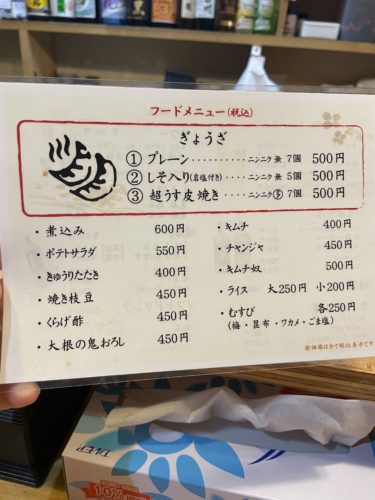 フードメニュー(税込)
ぎょうざ
① プレーン・・・・・・・・・・ニンニク 無 7個 500円
② しそ入り(岩塩付き)・・・ニンニク 無 5個 500円
③ 超うす皮焼き・・・・・・ニンニク 多 7個 500円
・煮込み 600円
・ポテトサラダ 550円
・きゅうりたたき 400円
・焼き枝豆 450円
・くらげ酢 450円
・大根の鬼おろし 450円
・キムチ 400円
・チャンジャ 450円
・キムチ奴 500円
・ライス 大250円 小200円
・むすび 各250円
(梅・昆布・ワカメ・ごま塩)
※価格は全て税込表示です
10%